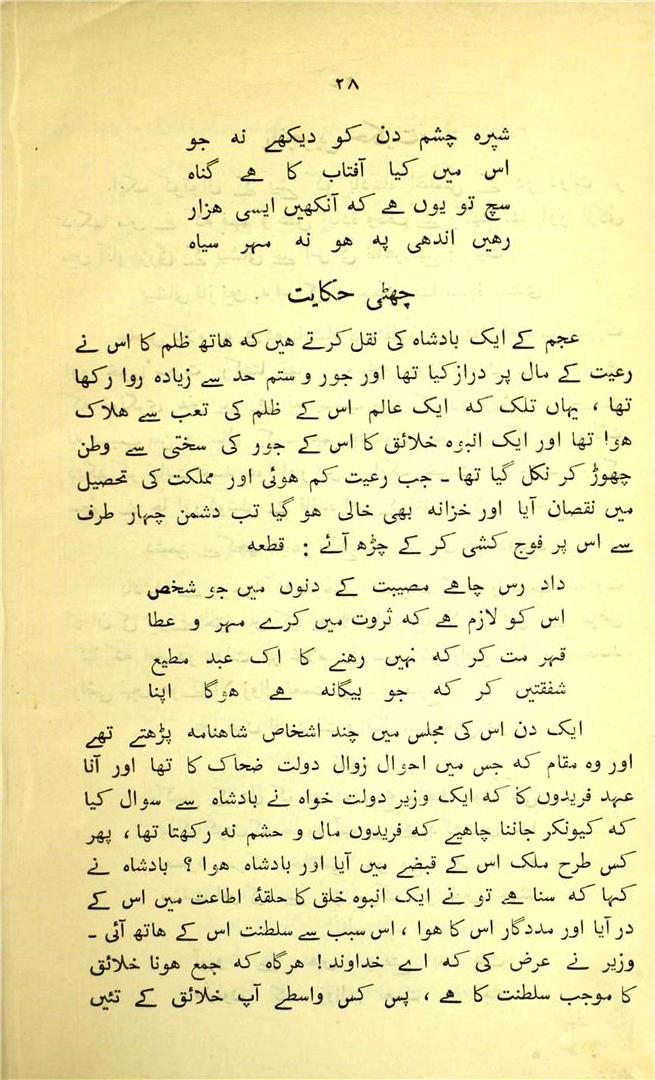 ۲۸
شپرہ چشم دن کو دیکھے نہ جو
اس میں کیا آفتاب کا ہے گناہ
سچ تو یوں ہے کہ آنکھیں ایسی ہزار
رھیں اندھی پہ ہو نہ مہر سیاہ
چھٹی حکایت
عجم کے ایک بادشاہ کی نقل کرتے ھیں کہ ھاتھ ظلم کا اس نے
رعیت کے مال پر دراز کیا تھا اور جور و ستم حد سے زیادہ روا رکھا
تھا ، یہاں تلک کہ ایک عالم اس کے ظلم کی تعب سے ھلاک
ھوا تھا اور ایک انبوہ خلائق کا اس کے جور کی سختی سے وطن
چھوڑ کر نکل گیا تھا ۔ جب رعیت کم ھوئی اور مملکت کی تحصیل
میں نقصان آیا اور خزانہ بھی خالی ھو گیا تب دشمن چہار طرف
سے اس پر فوج کشی کر کے چڑھ آئے : قطعہ
داد رس چاھے مصیبت کے دنوں میں جو شخص
اس کو لازم ھے کہ ثروت میں کرے مہر و عطا
قہر مت کر کہ نہیں رھنے کا اک عبد مطیع
شفقتیں کر کہ جو بیگانہ ھے ھوگا اپنا
ایک دن اس کی مجلس میں چند اشخاص شاھنامہ پڑھتے تھے
اور وہ مقام کہ جس میں احوال زوال دولت ضحاک کا تھا اور آنا
عہد فریدوں کا کہ ایک وزیر دولت خواہ نے بادشاہ سے سوال کیا
کہ کیونکر جاننا چاھیے کہ فریدوں مال و حشم نہ رکھتا تھا ، پھر
کس طرح ملک اس کے قبضے میں آیا اور بادشاہ ھوا ؟ بادشاہ نے
کہا کہ سنا ھے تو نے ایک انبوہ خلق کا حلقۂ اطاعت میں اس کے
در آیا اور مددگار اس کا ھوا ، اس سبب سے سلطنت اس کے ھاتھ آئی ۔
وزیر نے عرض کی کہ اے خداوند ! ھرگاہ کہ جمع ھونا خلائق
کا موجب سلطنت کا ھے ، پس کس واسطے آپ خلائق کے تئیں